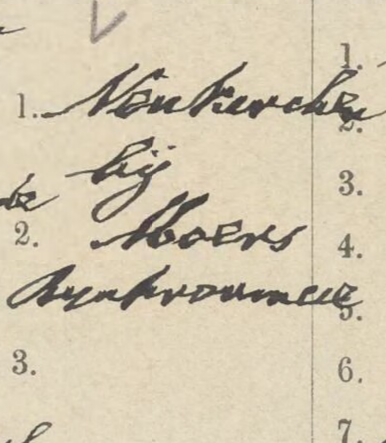 1. Neukerchen
bij
2. Moers
Rynkrovincie
3.
1.
2.
3.
4.
5.
6.
7.